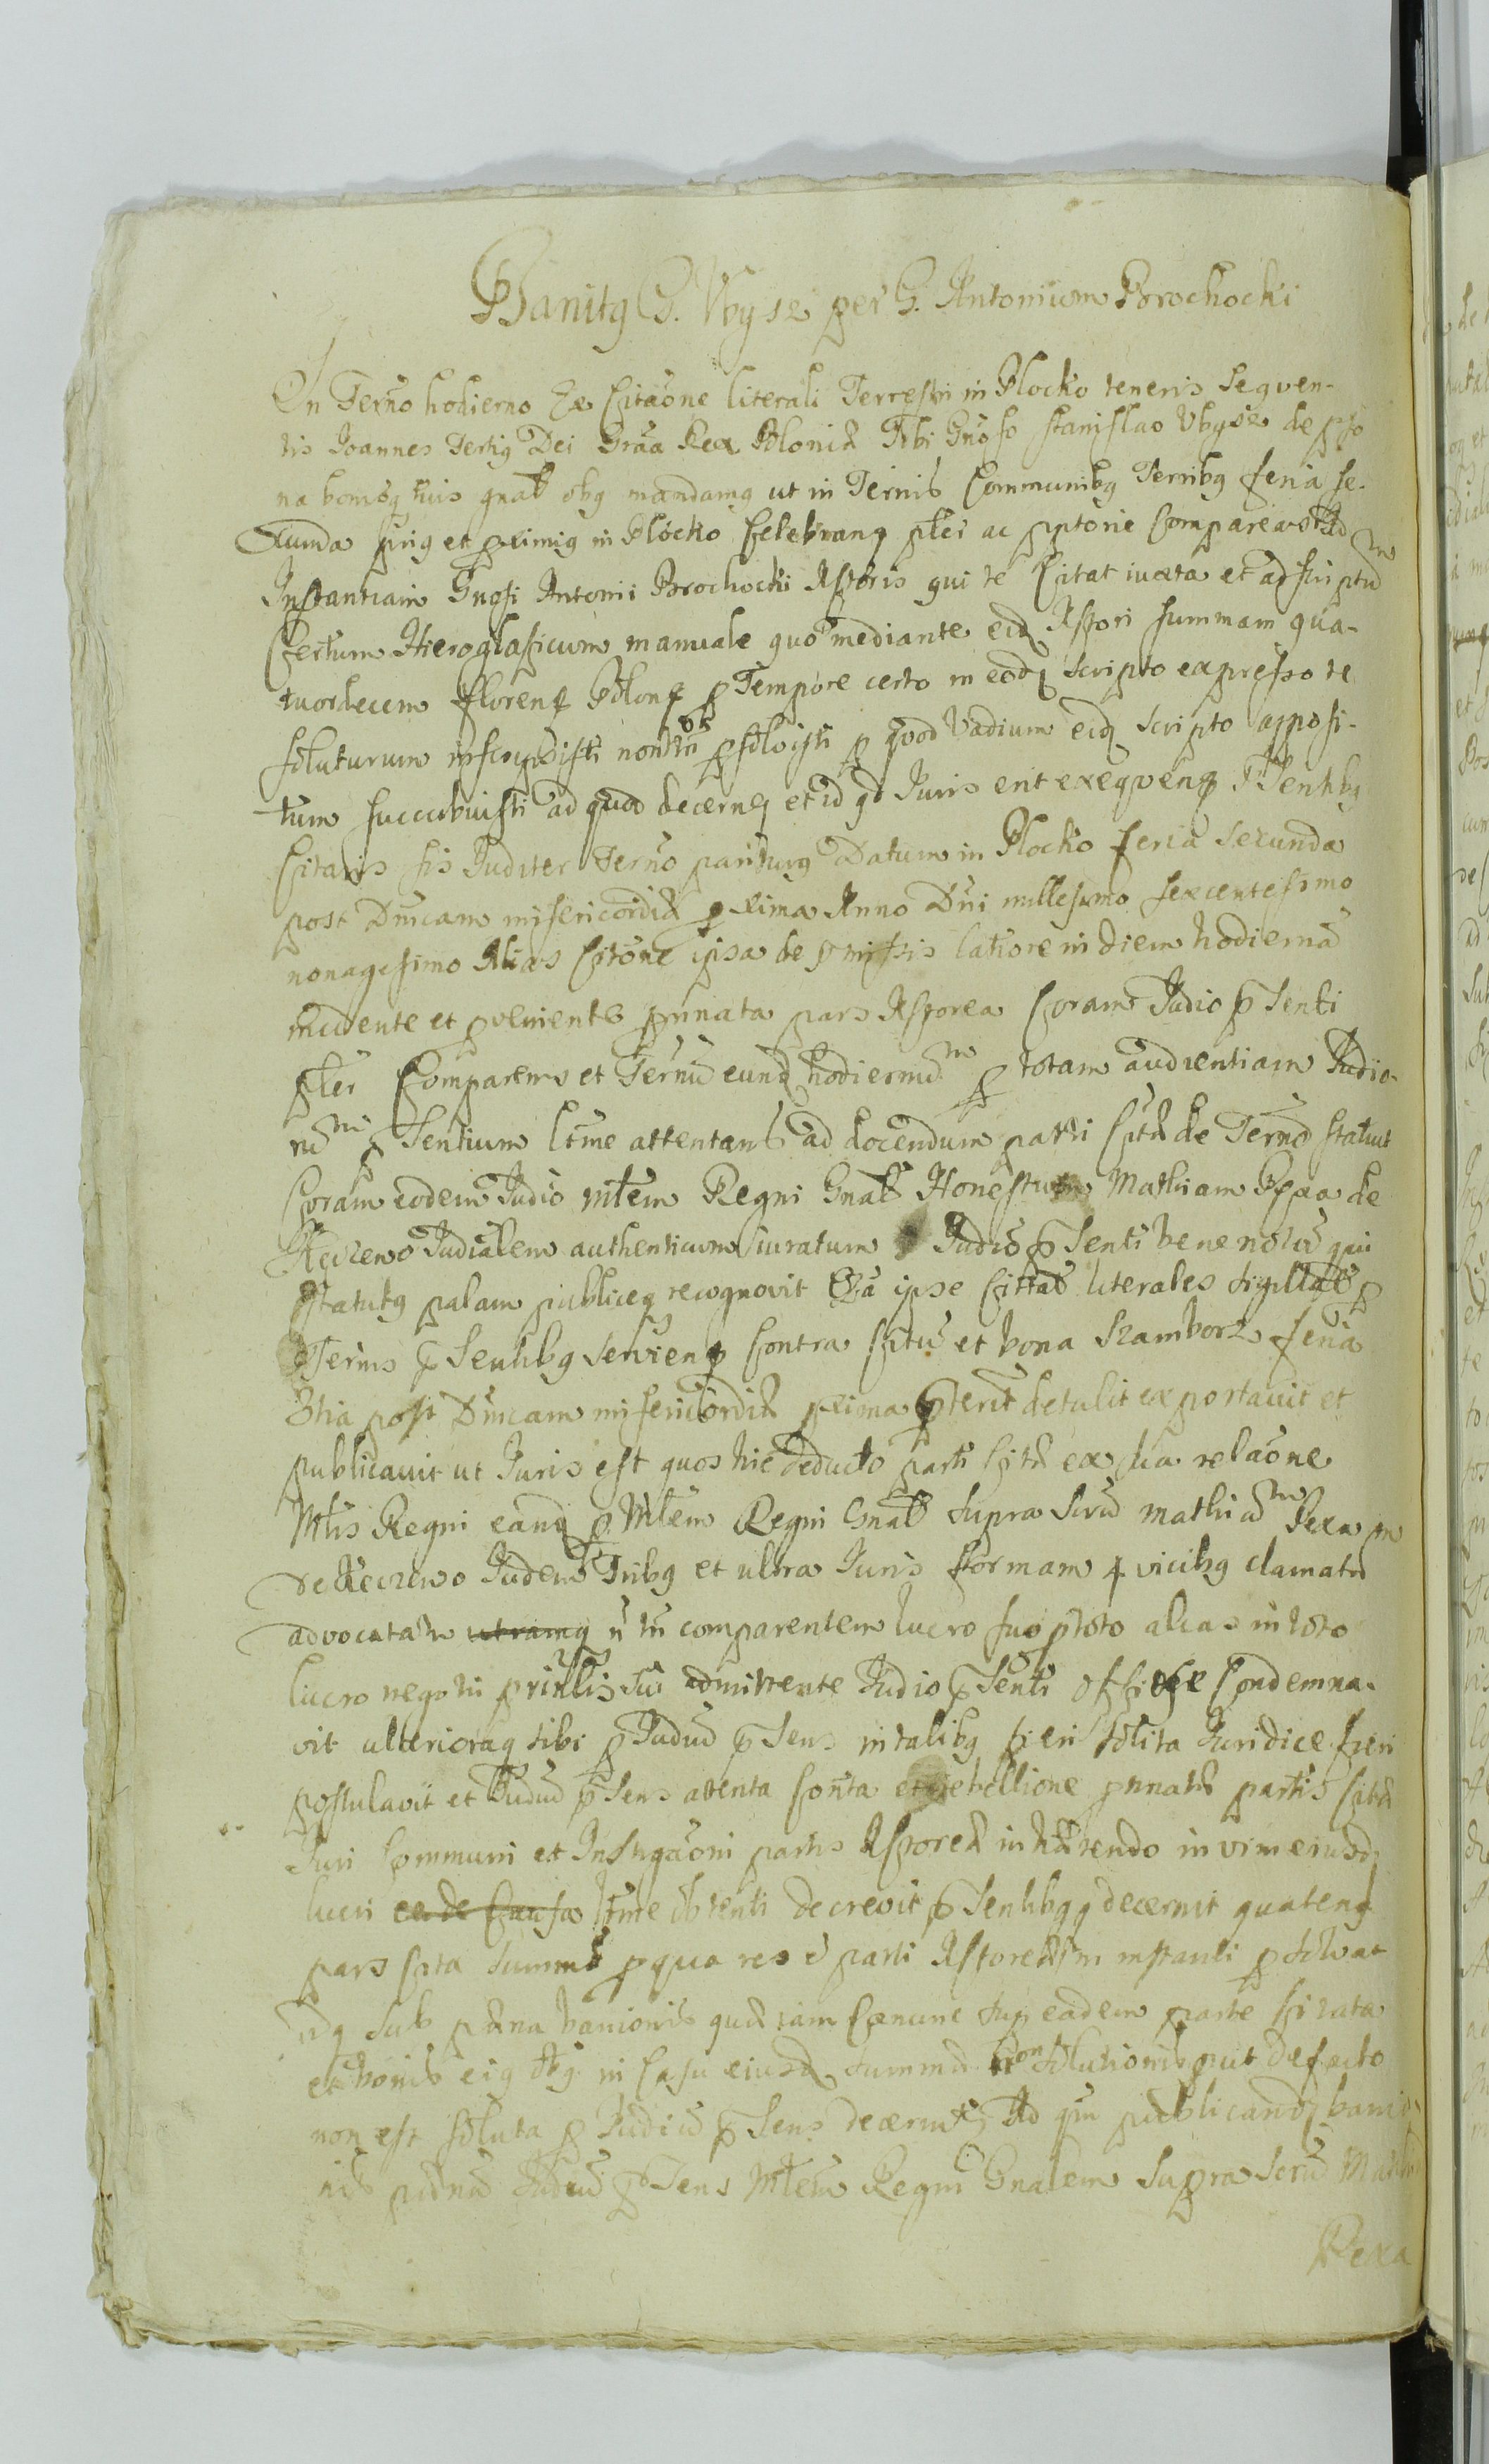 Banitq G. Vbysz per G. Antonium Brochocki
In Terno hodierno Ex Citaone literali Terrestri in Plocko teneris sequen-
tis Joannes Tertiq Dei Graa Rex Poloniæ Tibi Gnoso Stanislao Vbysz de pso
na bonisq tuis gnab obq mandamq ut in Ternis Communibq Ternibq feria se-
cunda priq et pximiq in Plocko Celebranq pler ac pptorie Compareas Ad
Instantiam Gnosi Antonii Brochocki Astoris qui te Citat iuxta et ad scriptu
Certum Hieroglasicum manuale quo mediante eidq Astori summam qua-
tuordecem florenq Polonq p Tempore certo in eodq scripto expresso te
soluturum inscripsisti non psoluisti p quod Vadium eidq scripto apposi-
tum succubuisti ad quod decernq et id qd Juris erit exequenq Psentibq
Citaris sis Juditer Terno pariturq Datum in Plocko feria Secunda
post Dnicam misericordiæ pxima Anno Dni millesimo sexcentesimo
nonagesimo Alias Citone ipsa de pmissis latiore in diem hodierna
incidente et pveniente pnnata pars Astorea Coram Judio pSenti
pler Comparens et Ternu eundq hodiernu p totam audientiam Judio-
ru pSentium ltme attentans ad docendum parti Citæ de Terno statuit
Coram eodem Judio Mtem Regni Gnab Honestum Mathiam Rexa de
Judialem authenticum iuratum Judio pSenti bene notu qui
statutq palam publiceq recognovit Qa ipse Cittas literales sigillat p
Ternis pSentibq Servienq Contra Citu et bona Szamborz feria
3tia post Dnicam misericordiæ pxima pterit detulit exportavit et
publicavit ut Juris est quos hic deducto parti Citæ ex sua relaone
Mtis Regni eandq p Mtem Regni Gnab supra Scru Mathia Rexa
de Judem Tribq et ultra Juris formam 4 vicibq clamata
advocatam utramq n tn comparentem lucro suo ptoto alias in toto
lucro negotii prinlis sui admittente Judio pSenti Officse Condemna-
vit ulterioraq sibi p Judiu pSens in talibq fieri solita Juridice fieri
postulavit et Judiu pSens attenta Conta et rebellione pnnatæ partis Citæ
Juri Communi et Instigaoni partis Astoreæ inhærendo in vim eiusdq
lucri ea de Causa ltme obtenti decrevit pSentibqq decernit quatenq
pars Cita summæ pqua res e parti Astoreæ in instanti psolvat
idq sub pæna banionis quæ iam Exnunc sup eadem parte Citata
et bonis eiq obq in Casu eiusdq summæ non solutionis put de facto
non est soluta p Judiu pSens decernitq Ad qm publicandq banio-
nis pæna Judiu pSens Mtem Regni Gnalem Supra Scru
Rexa